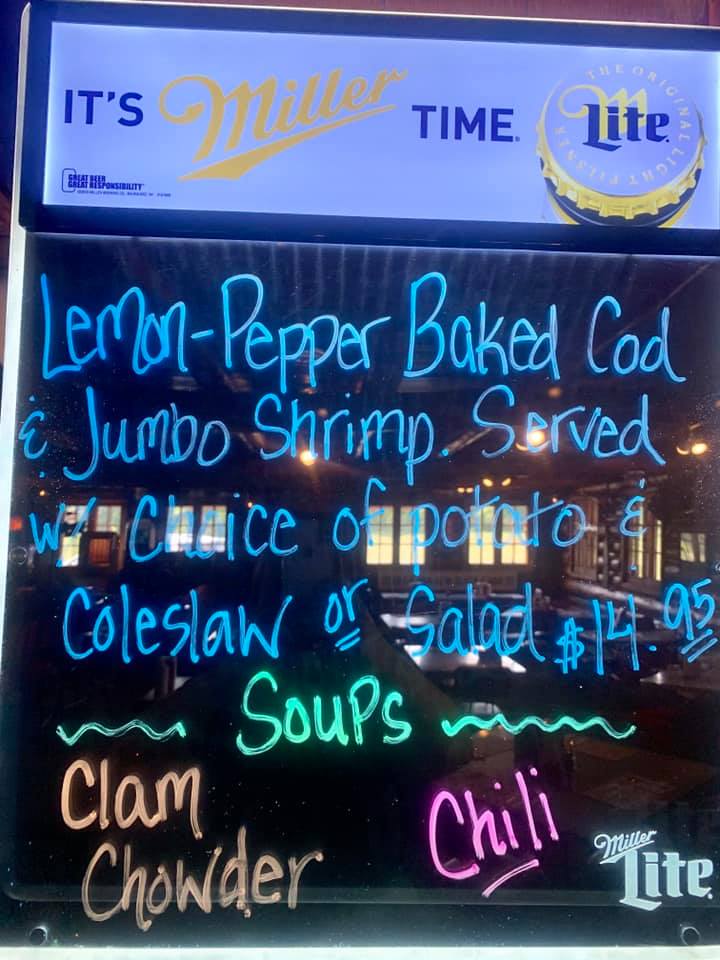 IT'S Miller TIME.
THE ORIGINAL LIGHT PILSNER
Lite
GREAT BEER
GREAT RESPONSIBILITY
Lemon-Pepper Baked Cod
& Jumbo Shrimp. Served
w/ Choice of potato &
Coleslaw or Salad $14.95
Soups
Clam
Chowder
Chili
Miller
Lite